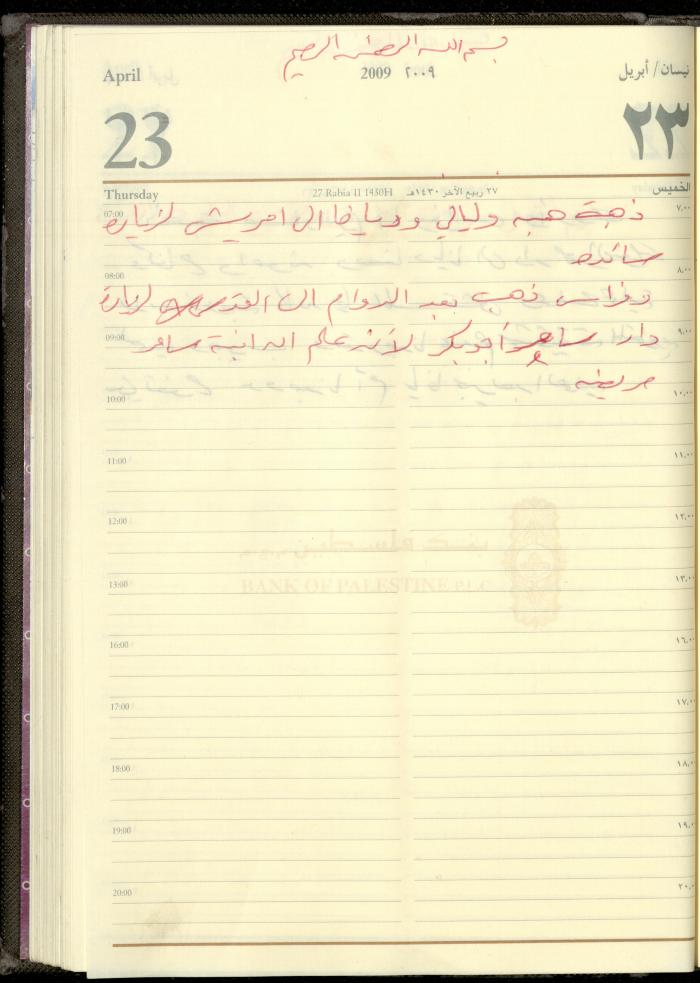 بسم الله الرحمن الرحيم
April 2009 ٢٠٠٩ نيسان/ أبريل
23 ٢٣
Thursday 27 Rabia II 1430H ٢٧ ربيع الآخر ١٤٣٠هـ الخميس
07:00 ذهبة هبه وليالي و الى لزيارة ٧,٠٠
08:00 ٨,٠٠
وفراس ذهب بعد الدوام الى القدس لزيارة
09:00 دار ساهر أبو بكر لأنه علم ان ابنة ساهر ٩,٠٠
مريضه
10:00 ١٠,٠٠
11:00 ١١,٠٠
12:00 ١٢,٠٠
BANK OF PALESTINE P.L.C
13:00 ١٣,٠٠
16:00 ١٦,٠٠
17:00 ١٧,٠٠
18:00 ١٨,٠٠
19:00 ١٩,٠٠
20:00 ٢٠,٠٠